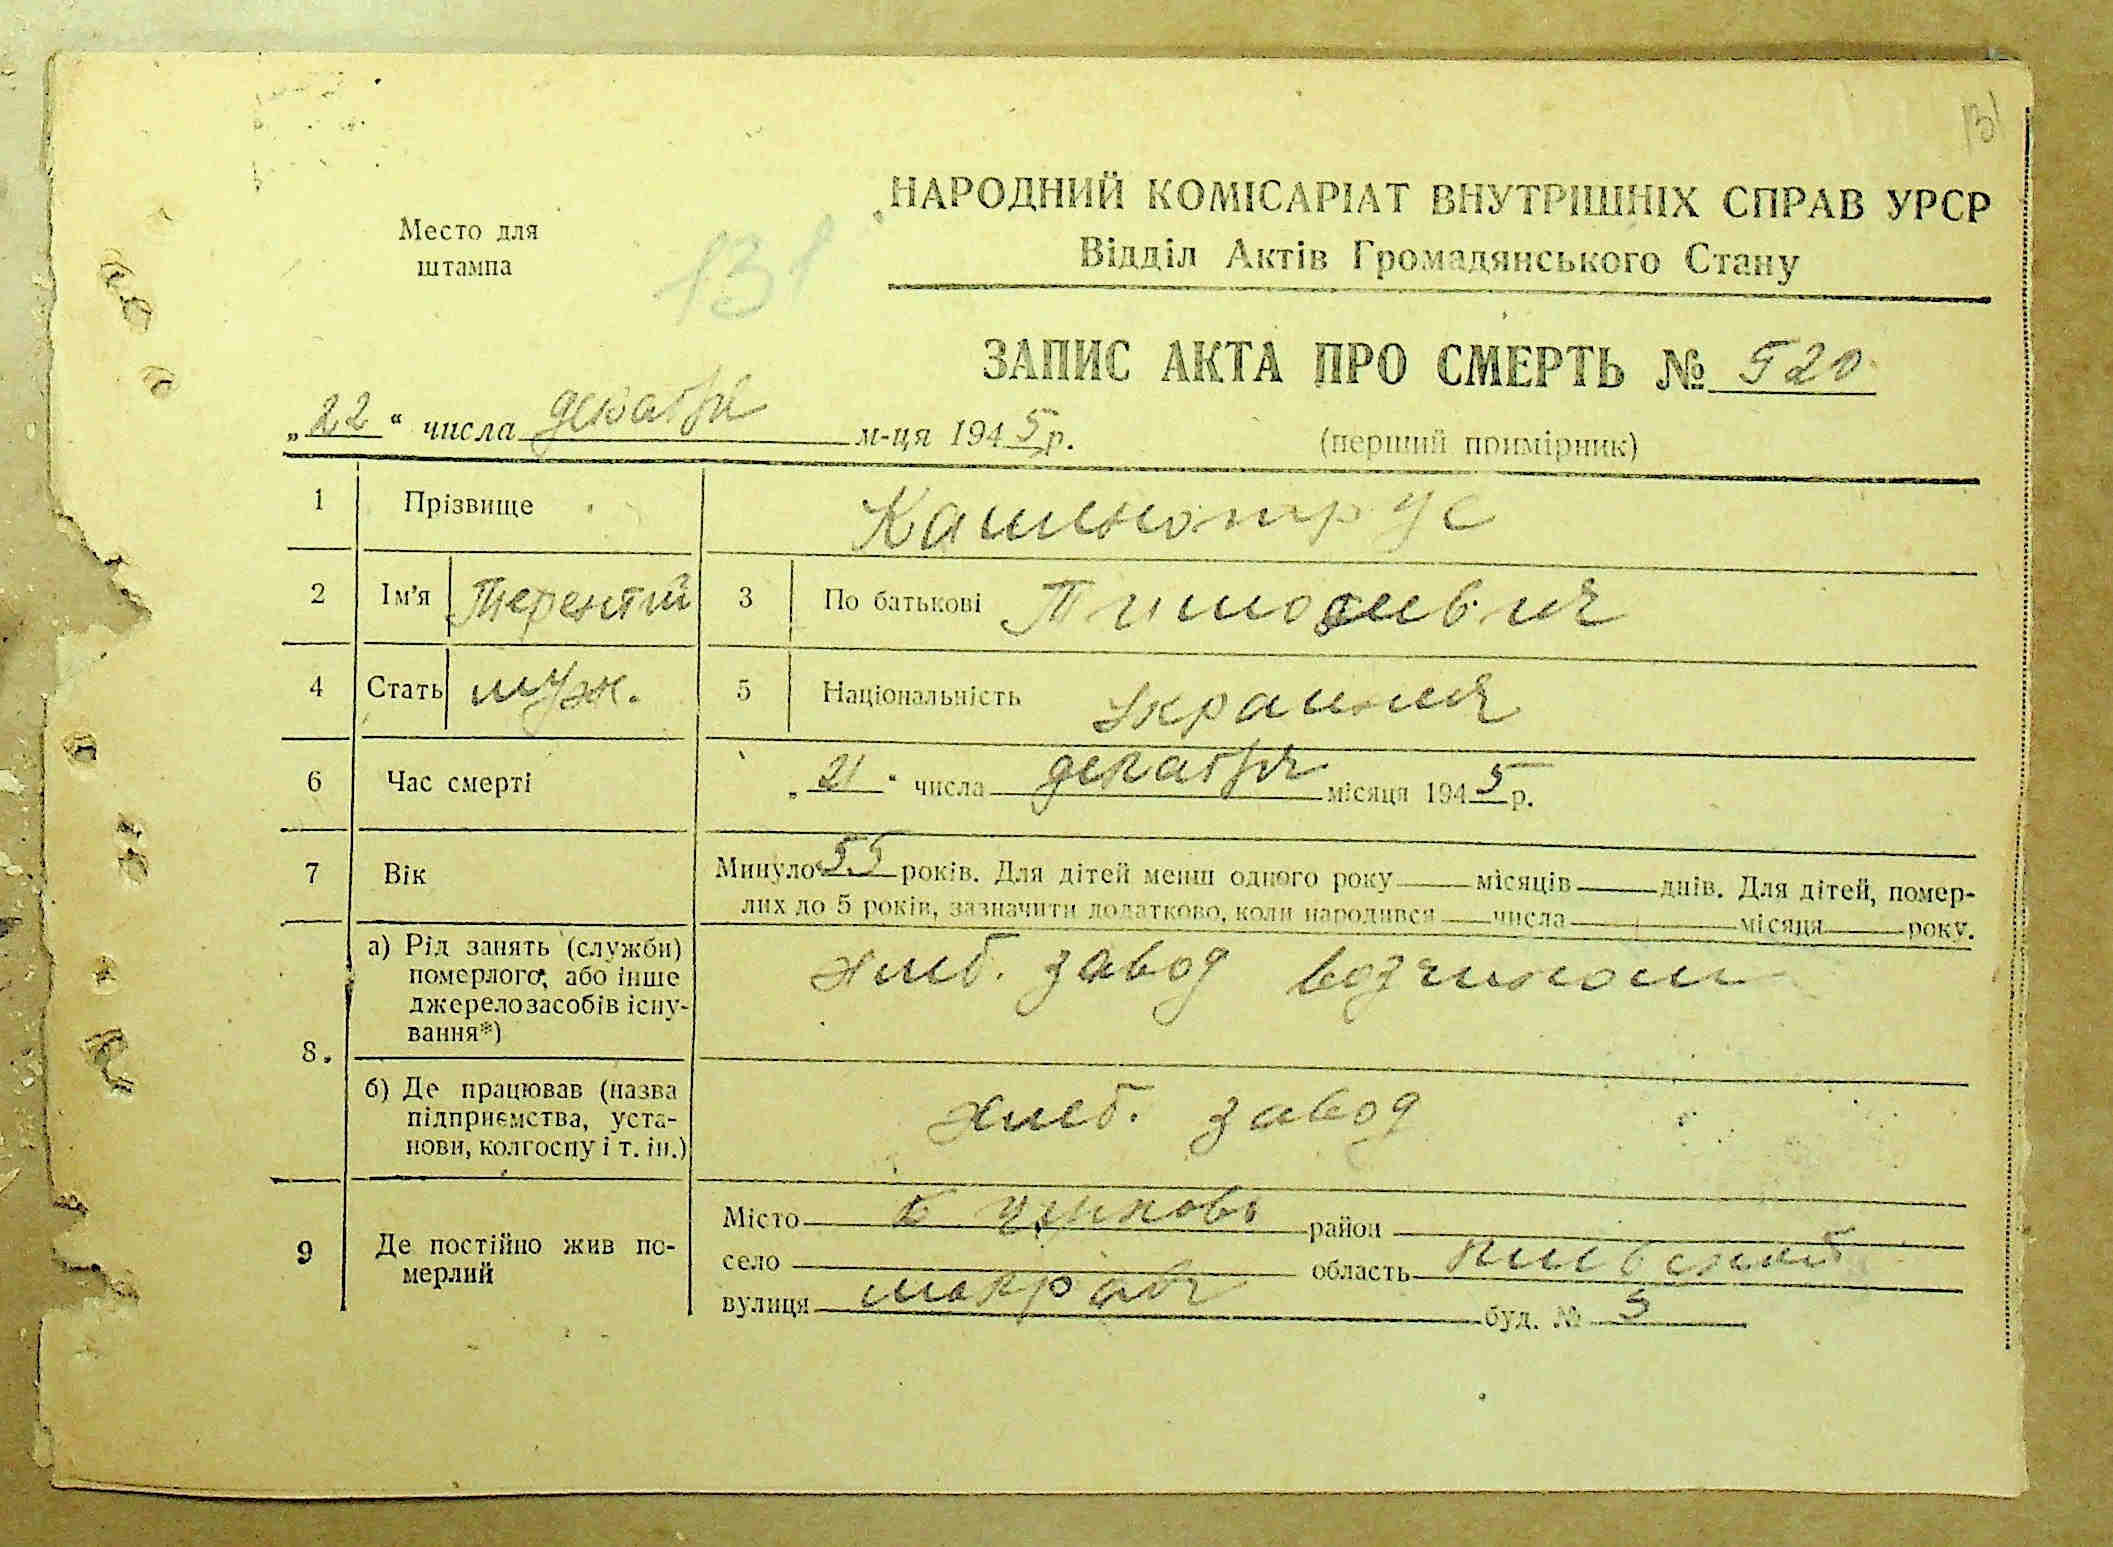 131
НАРОДНИЙ КОМІСАРІАТ ВНУТРІШНІХ СПРАВ УРСР
Відділ Актів Громадянського Стану
Место для
штампа
131
ЗАПИС АКТА ПРО СМЕРТЬ № 520
„22“ числа декабря м-ця 1945 р.
(перший примірник)
1 Прізвище
2 Ім'я Терентий 3 По батькові
4 Стать муж. 5 Національність украинец
6 Час смерті „21“ числа декабря місяця 1945 р.
7 Вік Минуло 55 років. Для дітей менш одного року місяців днів. Для дітей, помер-
лих до 5 років, зазначити додатково, коли народився числа місяця року.
8. а) Рід занять (служби)
померлого, або інше
джерело засобів існу-
вання*)
хлеб. завод возчиком
б) Де працював (назва
підприємства, уста-
нови, колгоспу і т. ін.)
хлеб. завод
9 Де постійно жив по-
мерлий
Місто район
село область
вулиця буд. № 3